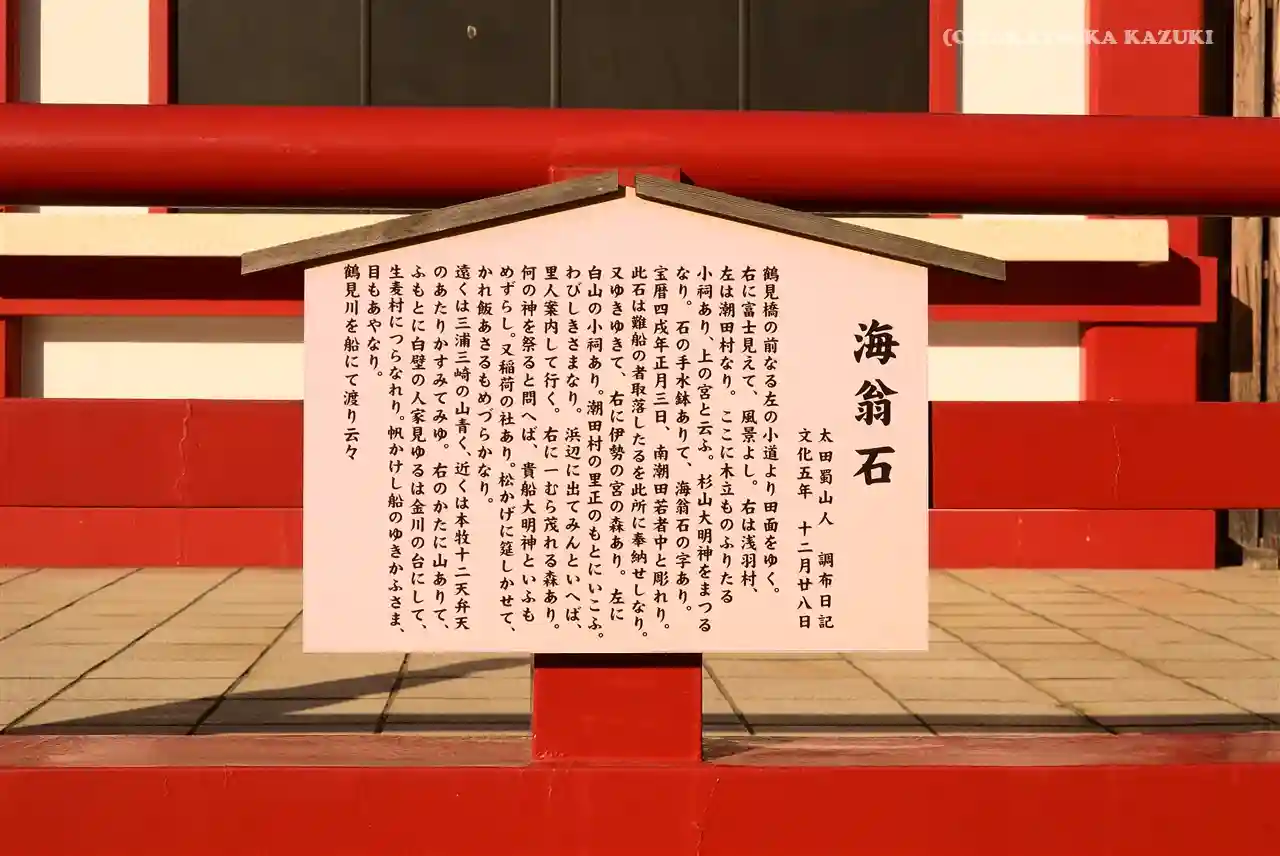 海翁石
太田蜀山人　調布日記
文化五年　十二月廿八日
鶴見橋の前なる左の小道より田面をゆく。
右に富士見えて、風景よし。右は浅羽村、
左は潮田村なり。ここに木立ものふりたる
小祠あり、上の宮と云ふ。杉山大明神をまつる
なり。石の手水鉢ありて、海翁石の字あり。
宝暦四戌年正月三日、南潮田若者中と彫れり。
此石は難船の者取落したるを此所に奉納せしなり。
又ゆきゆきて、右に伊勢の宮の森あり。左に
白山の小祠あり。潮田村の里正のもとにいこふ。
わびしきさまなり。浜辺に出てみんといへば、
里人案内して行く。右に一むら茂れる森あり。
何の神を祭ると問へば、貴船大明神といふも
めずらし。又稲荷の社あり。松かげに筵しかせて、
かれ飯あさるもめづらかなり。
遠くは三浦三崎の山青く、近くは本牧十二天弁天
のあたりかすみてみゆ。右のかたに山ありて、
ふもとに白壁の人家見ゆるは金川の台にして、
生麦村につらなれり。帆かけし船のゆきかふさま、
目もあやなり。
鶴見川を船にて渡り云々
KAZUKI